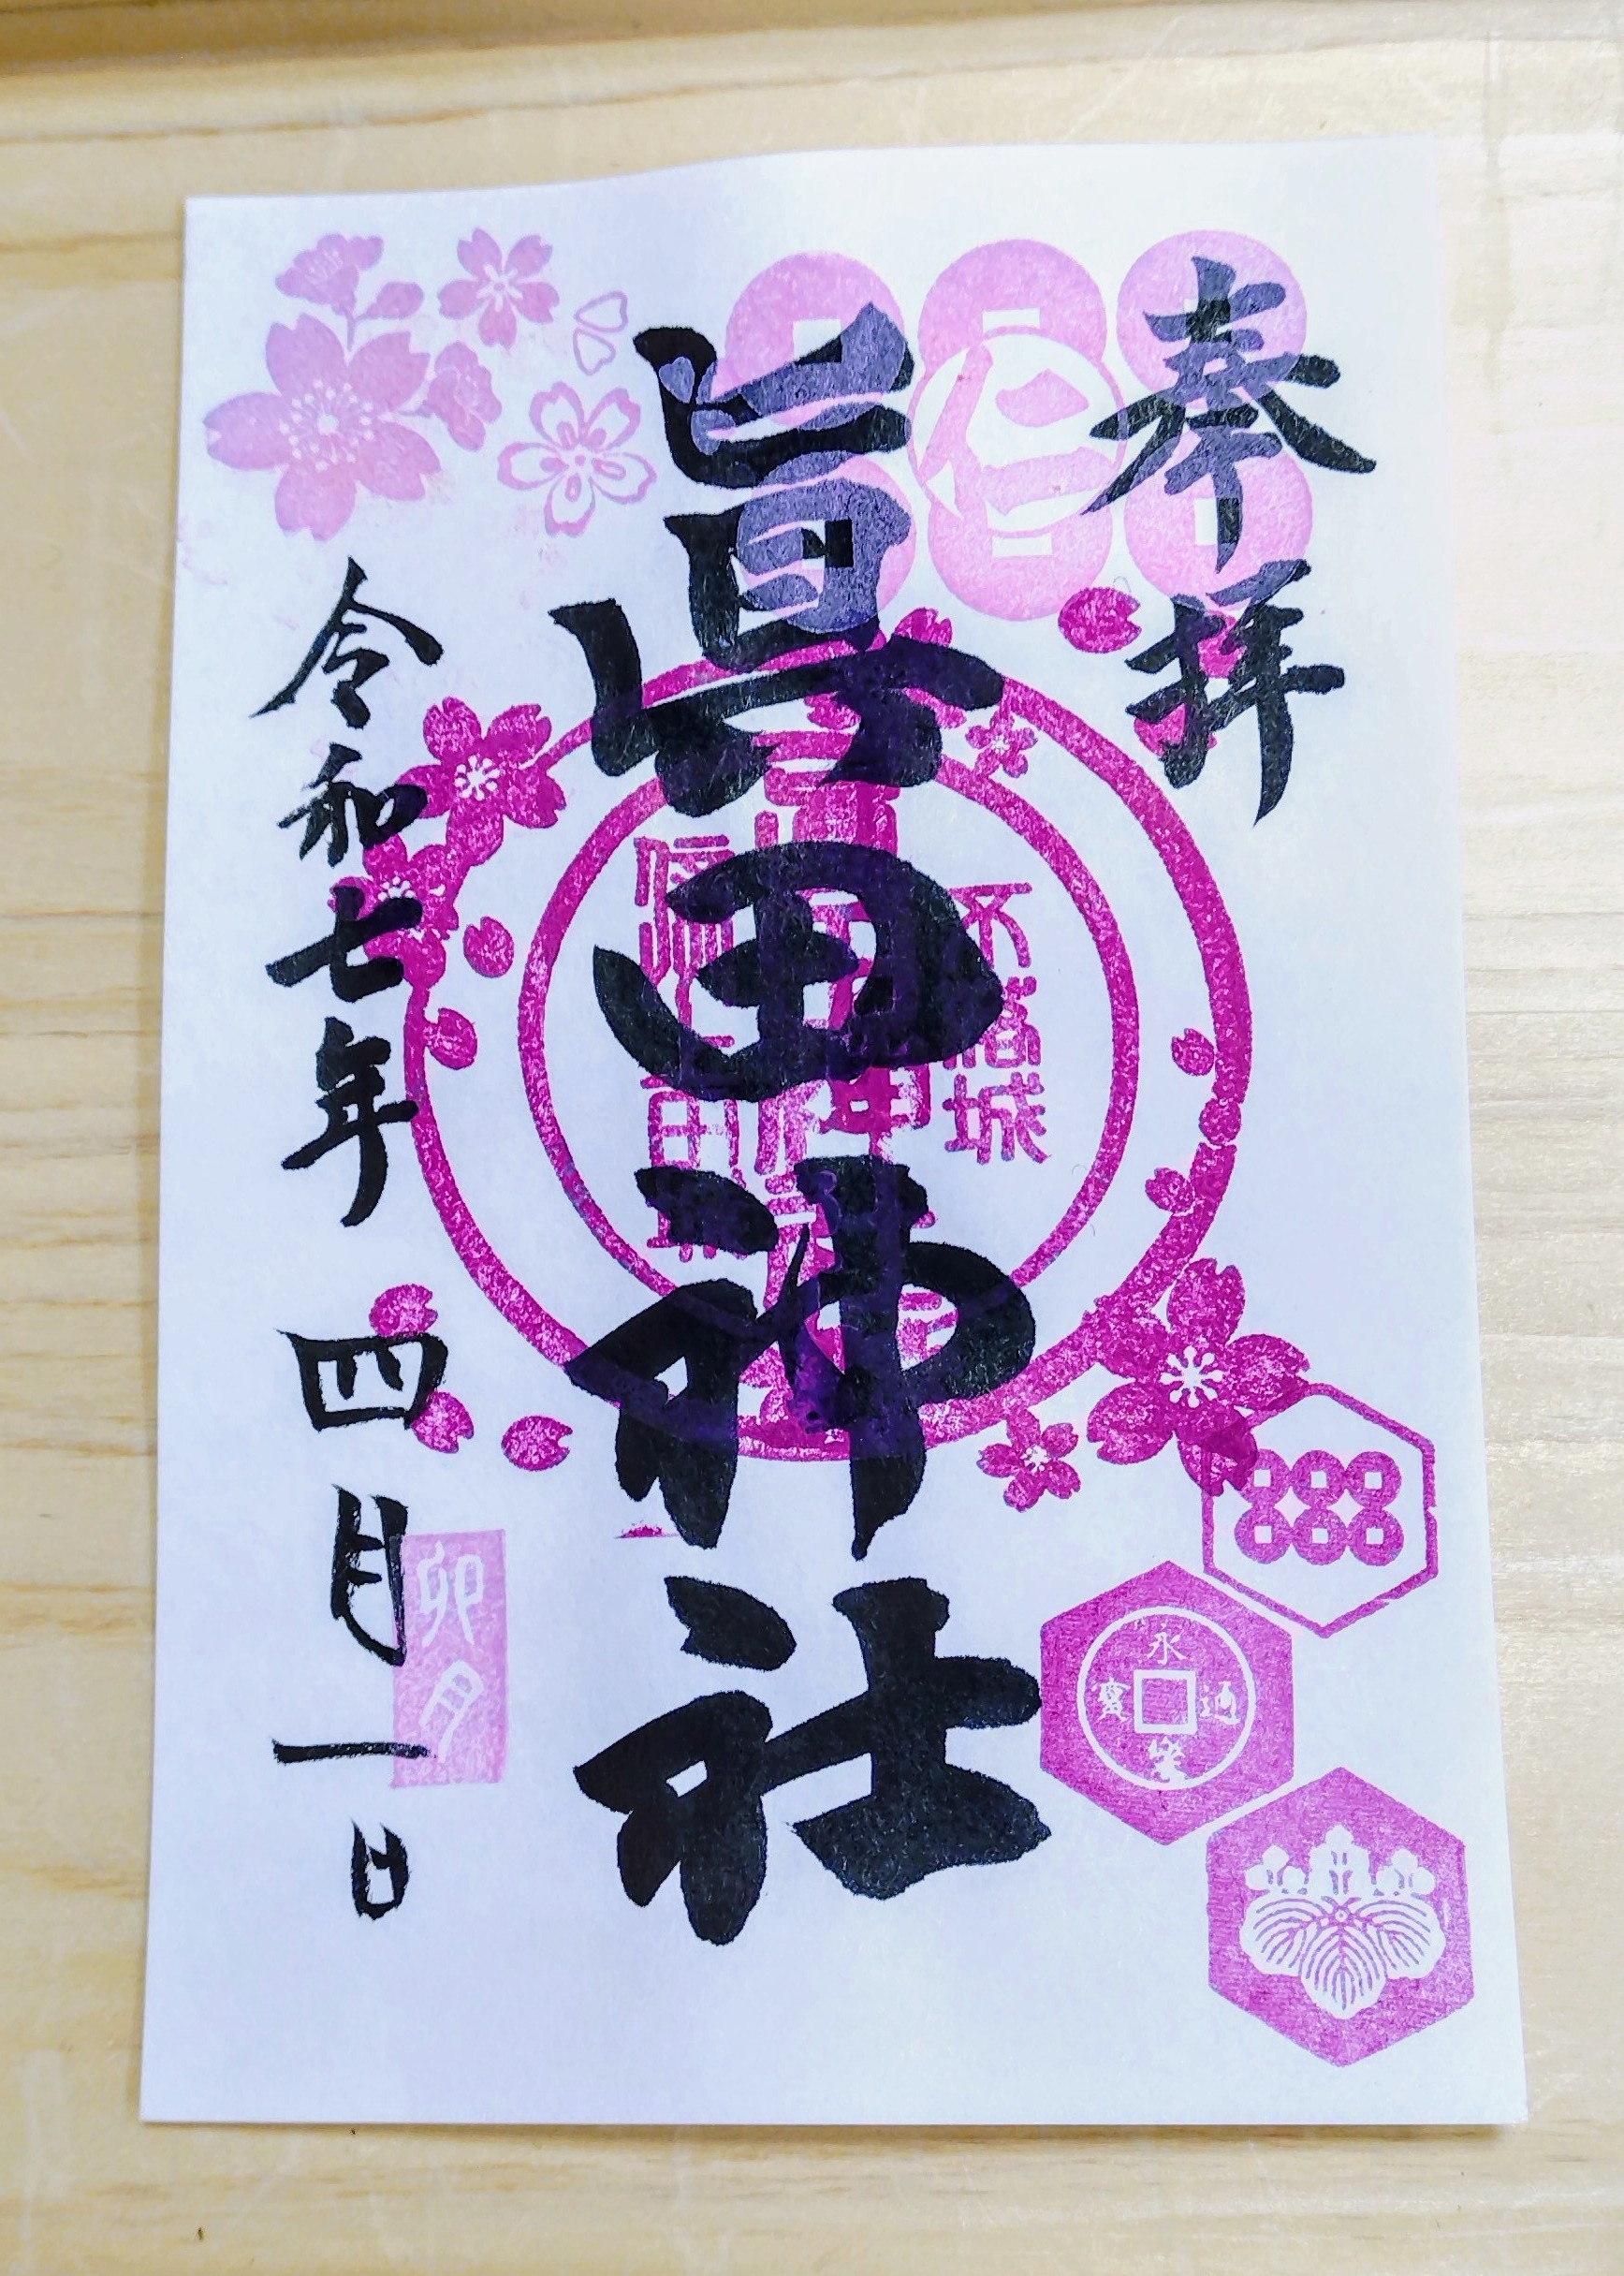 奉拝
仁
眞田神社
不落城
令和七年 四月一日
卯月
永通